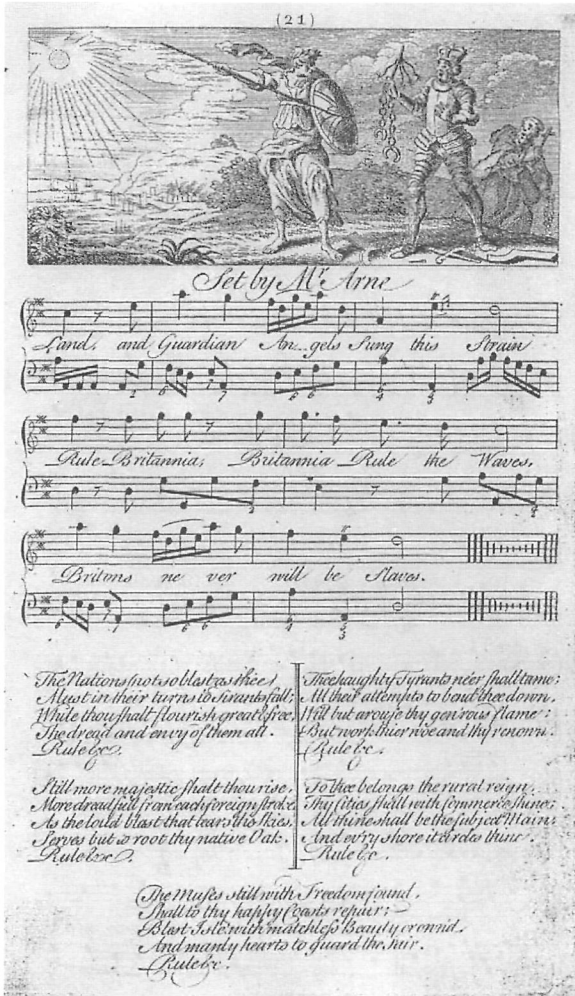 (21)
Set by Mr. Arne
Land, and Guardian An_gels Sung this Strain
Rule Britannia, Britannia Rule the Waves,
Britons ne ver will be slaves.
The Nations (not so blest as thee)
Must in their turns to tirants fall;
While thou shalt flourish great & free,
The dread and envy of them all.
Rule &c.
Still more majestic shalt thou rise,
More dreadfull from each foreign stroke
As the loud blast that tears the skies,
Serves but to root thy native Oak.
Rule &c.
Thee haughty Tyrants ne'er shall tame;
All their attempts to bend thee down,
Will but arouse thy gen'rous flame;
But work their woe and thy renown.
Rule &c.
To thee belongs the rural reign,
Thy Cities shall with Commerce shine;
All thine shall be the subject Main,
And ev'ry shore it circles thine.
Rule &c.
The Muses still with Freedom found,
Shall to thy happy Coasts repair;
Blest Isle with matchless Beauty crown'd,
And manly hearts to guard the fair.
Rule &c.